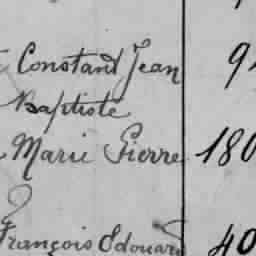 Constant Jean 9
Baptiste
Marie Pierre 180
François Edouard 40